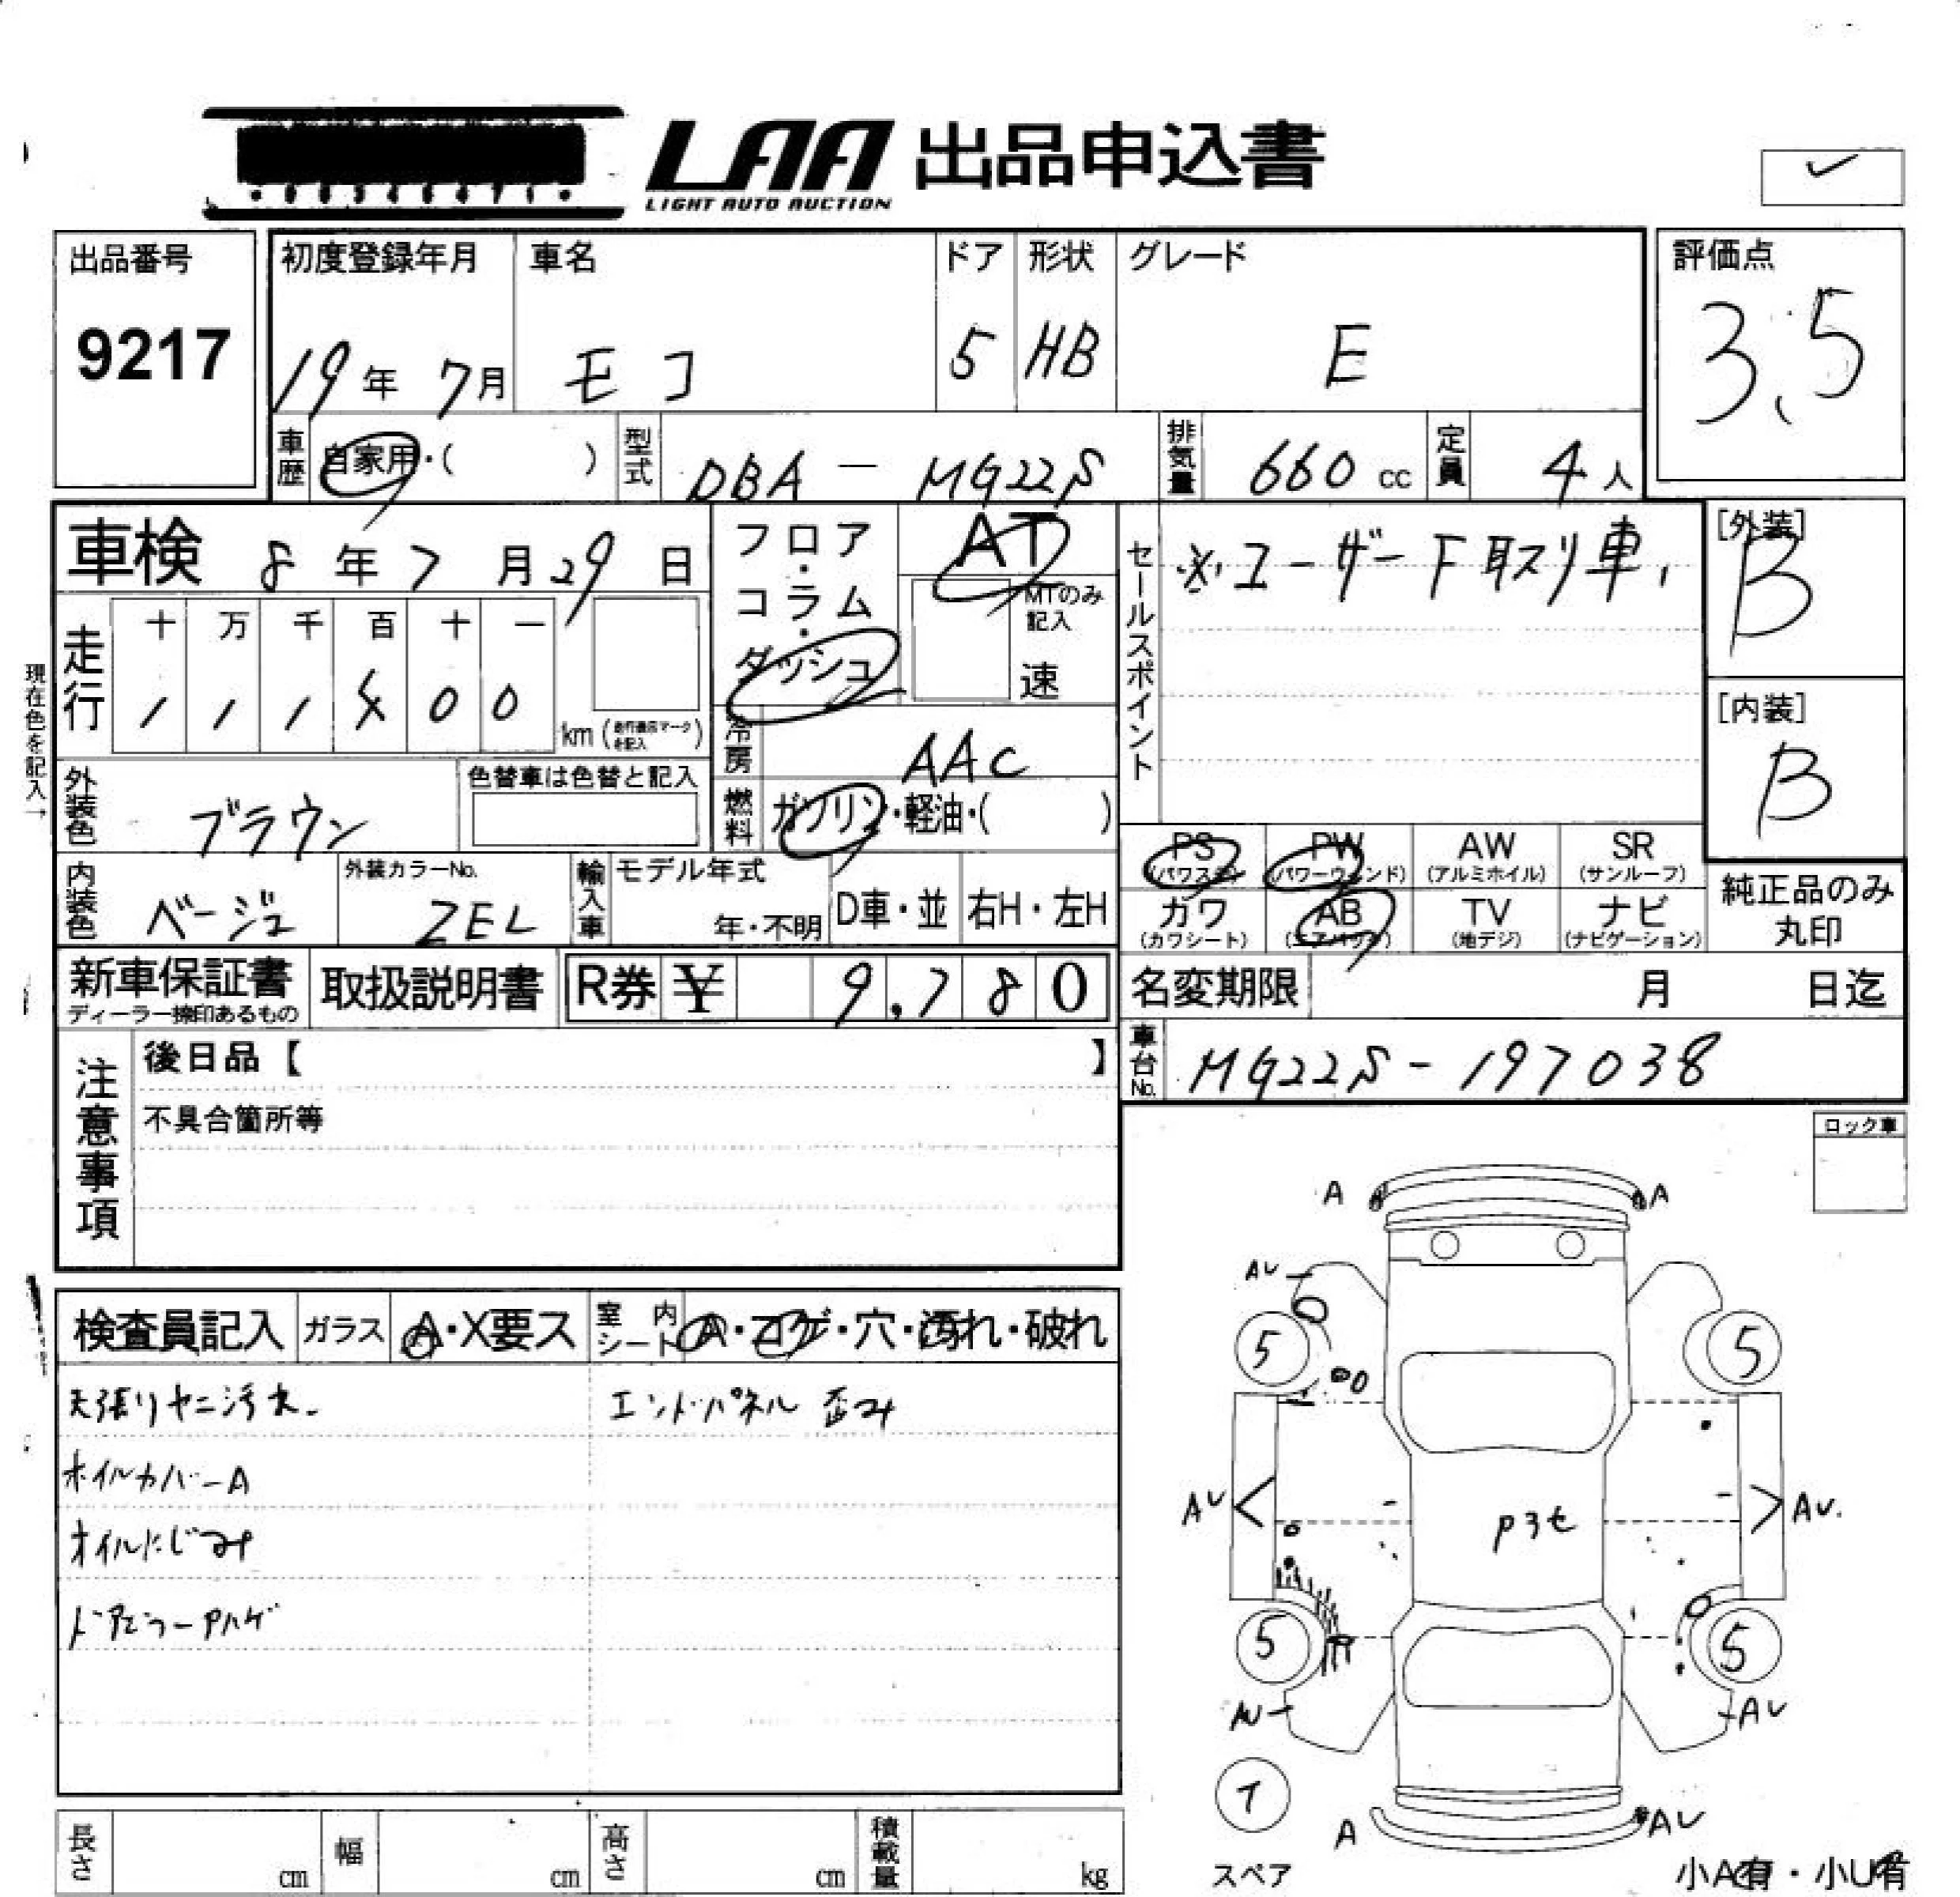 LAA 出品申込書
LIGHT AUTO AUCTION
出品番号
9217
初度登録年月
19年 7月
車名
モコ
ドア
5
形状
HB
グレード
E
評価点
3.5
車歴
自家用・( )
型式
DBA - MG22S
排気量
660 cc
定員
4人
車検 8年7月29日
フロア・コラム・ダッシュ
AT
MTのみ記入
速
セールスポイント
※ユーザー下取スリ車.
[外装]
B
[内装]
B
現在色を記入→
走行
十 万 千 百 十 一
km
冷房
AAC
燃料
ガソリン・軽油・( )
外装色
ブラウン
色替車は色替と記入
内装色
ベージュ
外装カラーNo.
ZEL
輸入車
モデル年式
年・不明
D車・並
右H・左H
PS
(パワステ)
PW
(パワーウィンド)
AW
(アルミホイル)
SR
(サンルーフ)
カワ
(カワシート)
AB
(エアバック)
TV
(地デジ)
ナビ
(ナビゲーション)
純正品のみ
丸印
新車保証書
ディーラー捺印あるもの
取扱説明書
R券 ¥ 9,780
名変期限 月 日迄
車台No.
MG22S-197038
注意事項
後日品【 】
不具合箇所等
ロック車
検査員記入
ガラス
A・X要ス
室内シート
A・コゲ・穴・汚れ・破れ
天張りヤニ汚れ
エンドパネル 歪み
ホイルカバーA
オイルにじみ
ドアミラーAハゲ
A
A
AU
5
5
AU
P3セ
AU.
5
5
AU
AU
T
スペア
A
AU
小A有・小U有
長さ cm
幅 cm
高さ cm
積載量 kg